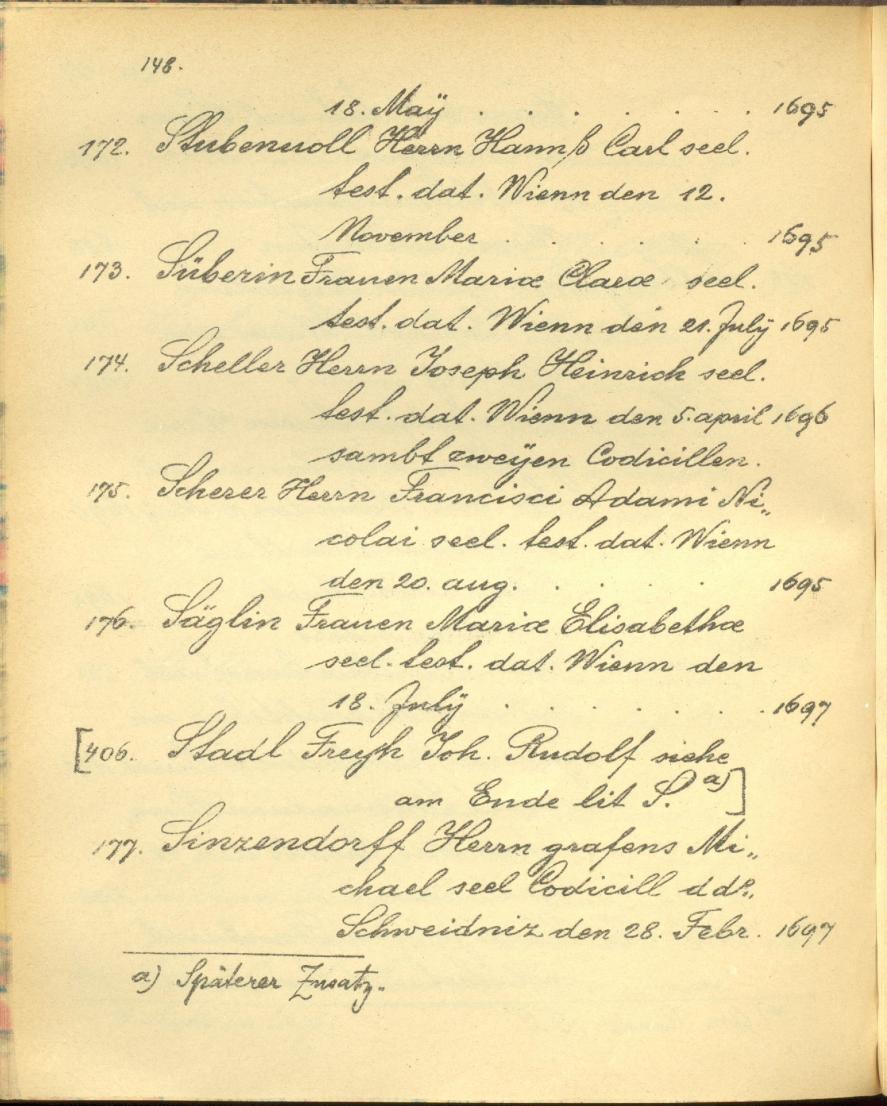 148.
18. Maÿ . . . . . . 1695
172. Stubenvoll Herrn Hannß Carl seel.
test. dat. Wienn den 12.
November . . . . . 1695
173. Süberin Frauen Mariæ Claræ seel.
test. dat. Wienn den 21. Julÿ 1695
174. Scheller Herrn Joseph Heinrich seel.
test. dat. Wienn den 5. april 1696
sambt zweÿen Codicillen.
175. Scherer Herrn Francisci Adami Ni„
colai seel. test. dat. Wienn
den 20. aug. . . . . 1695
176. Säglin Frauen Mariæ Elisabethæ
seel. test. dat. Wienn den
18. Julÿ . . . . . . 1697
[406. Stadl Freyh Joh. Rudolf siehe
am Ende lit S. a)]
177. Sinzendorff Herrn grafens Mi„
chael seel Codicill ddo.
Schweidniz den 28. Febr. 1697
a) Späterer Zusatz.